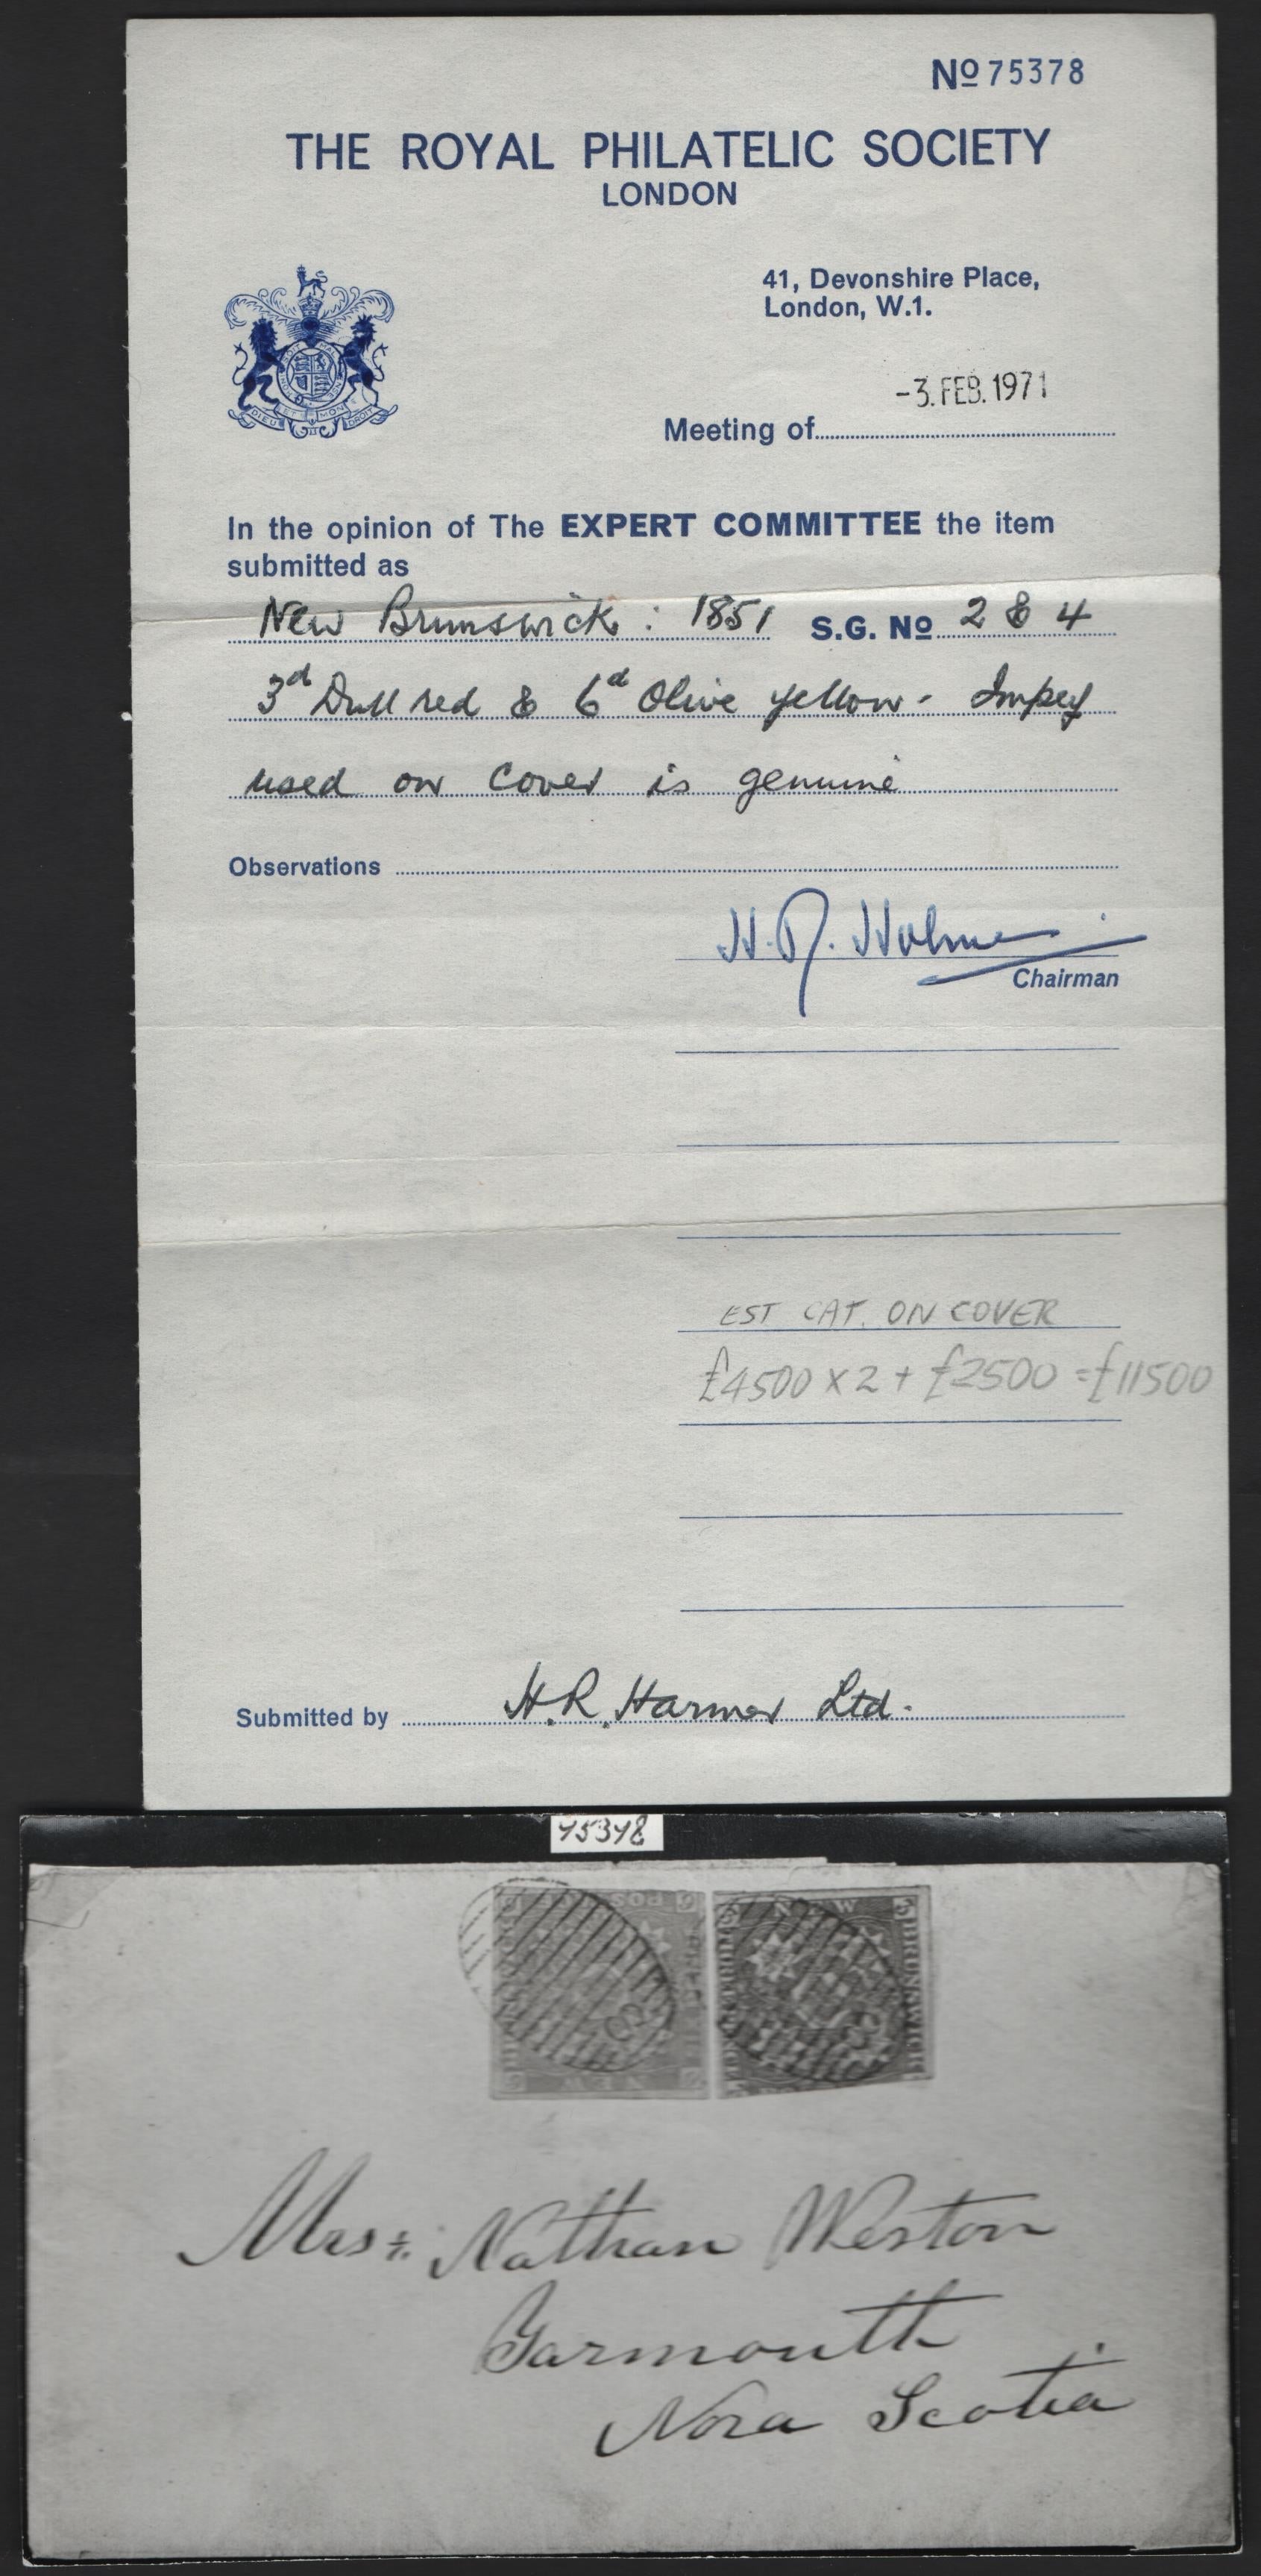 Nº 75378
THE ROYAL PHILATELIC SOCIETY
LONDON
41, Devonshire Place,
London, W.1.
-3. FEB. 1971
Meeting of
DIEU ET MON DROIT
In the opinion of The EXPERT COMMITTEE the item
submitted as
New Brunswick: 1851 S.G. Nº 2 & 4
3d Dull red & 6d Olive yellow - Imperf
used on cover is genuine
Observations
H.R. Holmes
Chairman
EST CAT. ON COVER
£4500 x 2 + £2500 = £11500
Submitted by H.R. Harmer Ltd.
75378
NEW
BRUNSWICK
NEW
Mrs. Nathan Weston
Yarmouth
Nova Scotia